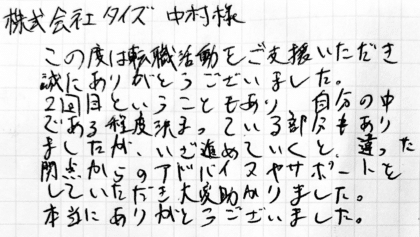 株式会社タイズ 中村様
この度は転職活動をご支援いただき
誠にありがとうございました。
2回目ということもあり、自分の中
である程度決まっている部分もあり
ましたが、いざ進めていくと、違った
観点からのアドバイスやサポートを
していただき大変助かりました。
本当にありがとうございました。